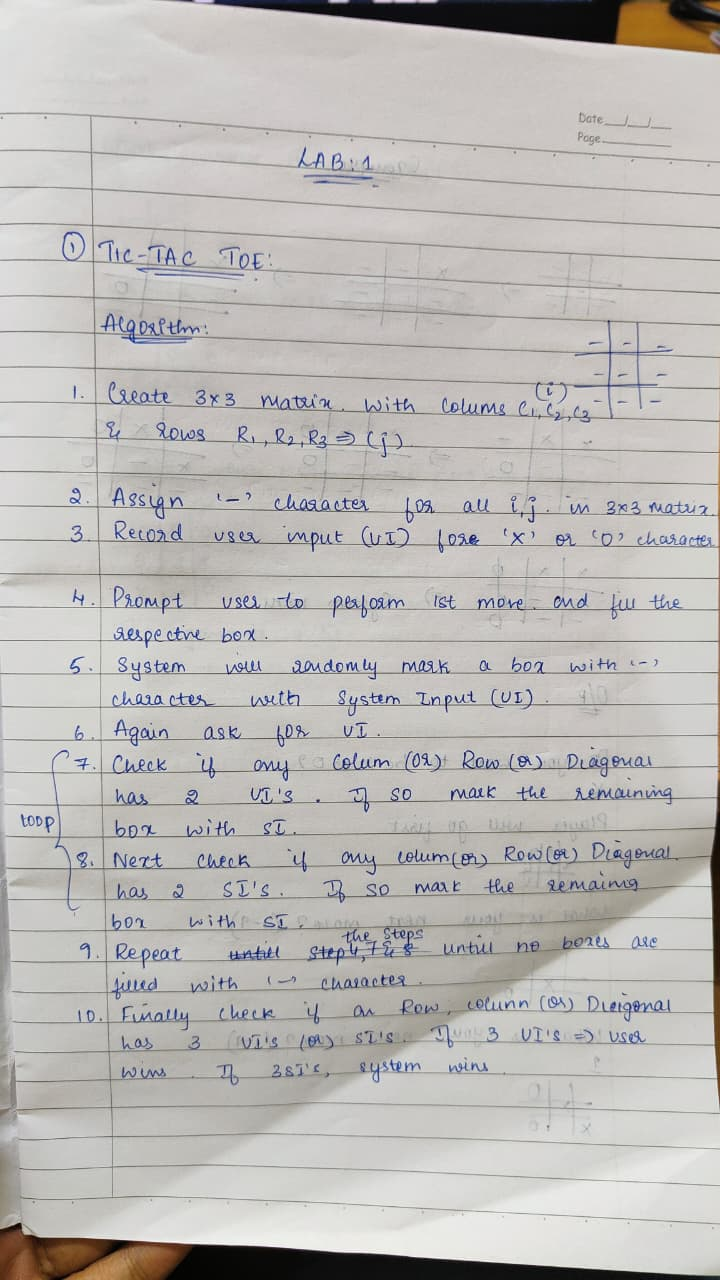 Date __/__/__
Page ______
LAB: 1
① TIC-TAC TOE:
Algorithm:
1. Create 3x3 matrix. with colums (i) C1, C2, C3
& rows R1, R2, R3 ⇒ (j)
2. Assign '-' character for all i,j. in 3x3 matrix.
3. Record user input (UI) fore 'X' or 'O' character
4. Prompt user to perform 1st move. and fill the
respective box.
5. System will randomly mark a box with '-'
character with System Input (UI).
6. Again ask for UI.
7. Check if any Colum (or) Row (or) Diagonal
has 2 UI's. If so mark the remaining
loop
box with SI.
8. Next check if any colum (or) Row (or) Diagonal.
has 2 SI's. If so mark the remaing
box with SI.
the steps
9. Repeat until step 4, 7 & 8 untill no boxes are
filled with '-' character.
10. Finally check if an Row, column (or) Dieigonal
has 3 UI's (or) SI's. If 3 UI's ⇒ user
wins. If 3SI's, system wins.